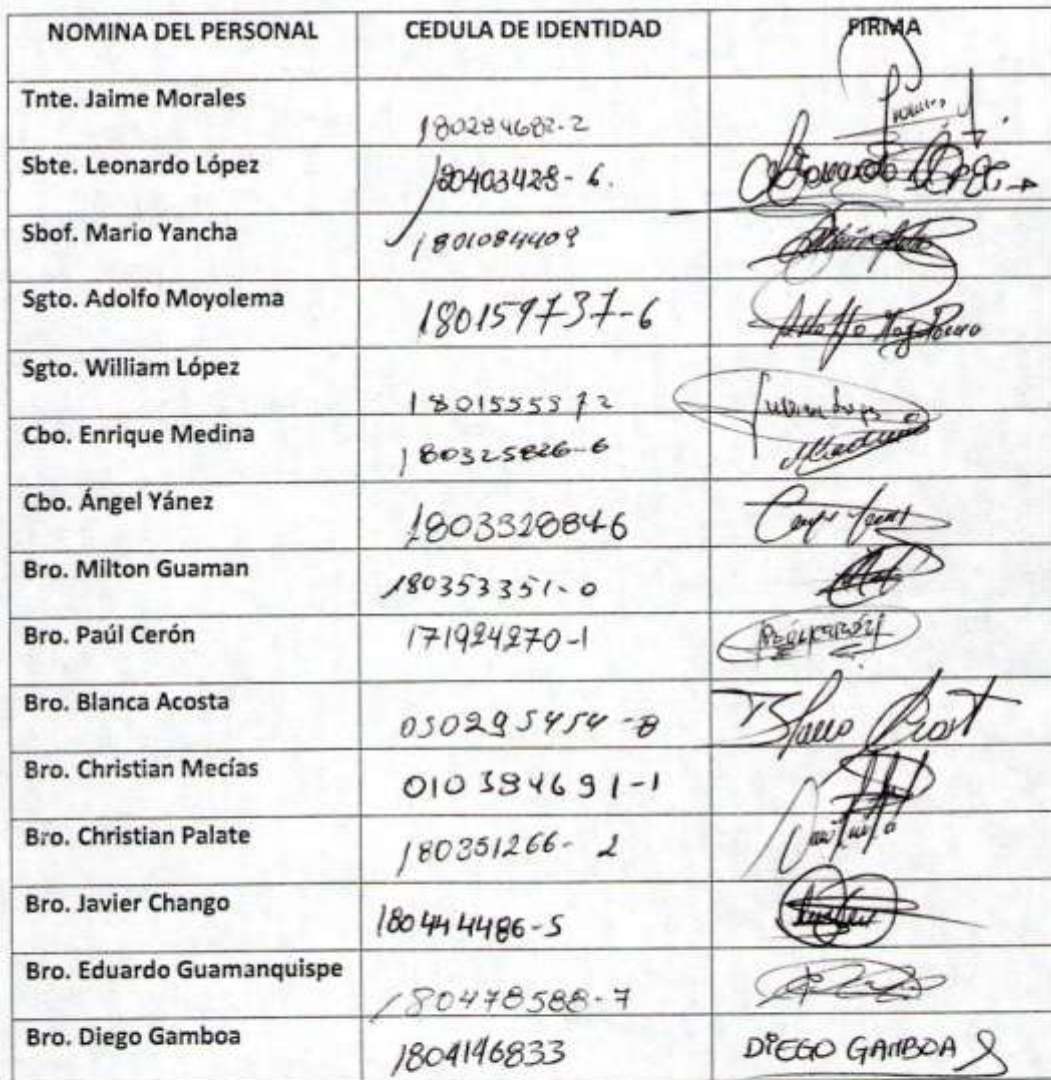 NOMINA DEL PERSONAL CEDULA DE IDENTIDAD FIRMA
Tnte. Jaime Morales 180284682-2
Sbte. Leonardo López 180403428-6. Leonardo López
Sbof. Mario Yancha 1801084409
Sgto. Adolfo Moyolema 180159737-6 Adolfo
Sgto. William López 1801555372
Cbo. Enrique Medina 180325826-6
Cbo. Ángel Yánez 1803328846
Bro. Milton Guaman 180353351-0
Bro. Paúl Cerón 171924270-1
Bro. Blanca Acosta 050295454-8
Bro. Christian Mecías 010384691-1
Bro. Christian Palate 180351266-2
Bro. Javier Chango 180444486-5
Bro. Eduardo Guamanquispe 180478588-7
Bro. Diego Gamboa 1804146833 DIEGO GAMBOA